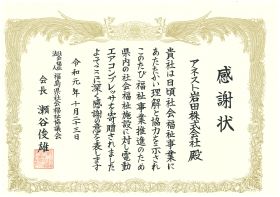 感謝状
アネスト岩田株式会社 殿
貴社は日頃社会福祉事業に
あたたかい理解と協力を示され
このたび福祉事業推進のため
県内の社会福祉施設に対し電動
エアコンプレッサを寄贈されました
よってここに深く感謝の意を表します
令和元年十月二十三日
社会福祉法人 福島県社会福祉協議会
会長 瀬谷俊雄